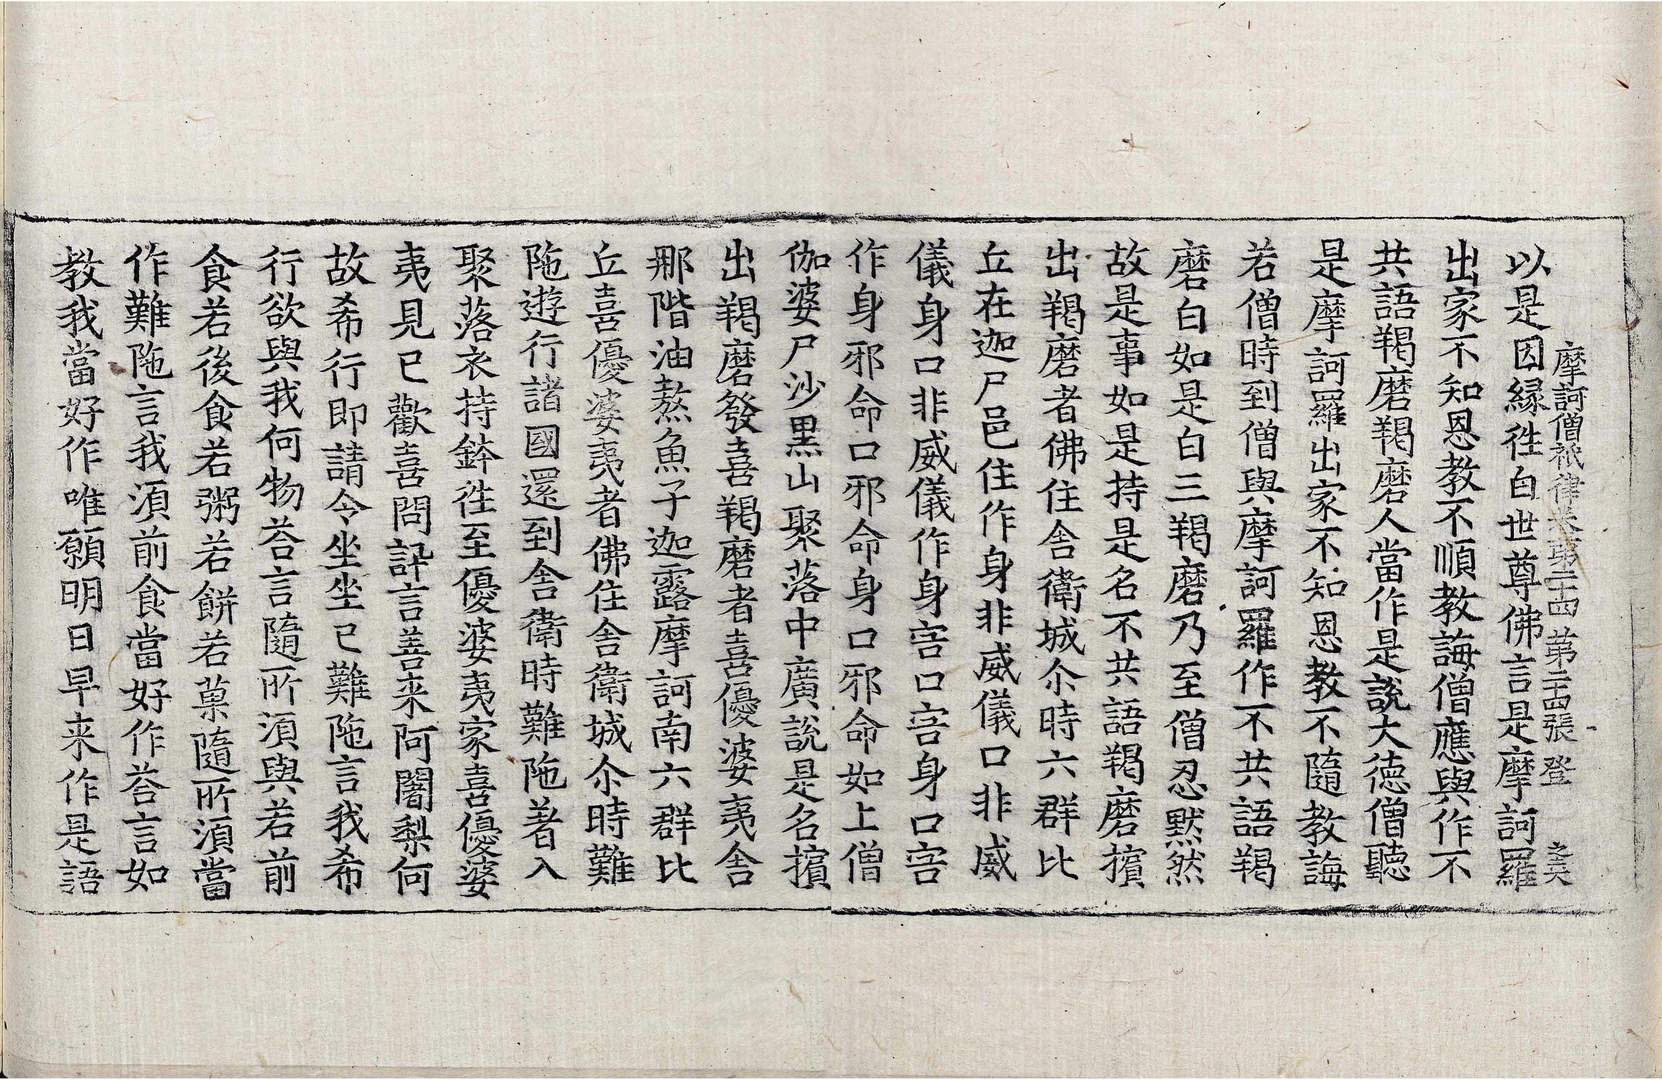 摩訶僧祇律卷第二十四 第二十四張 登
以是因縁徃白世尊佛言是摩訶羅
出家不知恩教不順教誨僧應與作不
共語羯磨羯磨人當作是說大徳僧聽
是摩訶羅出家不知恩教不隨教誨
若僧時到僧與摩訶羅作不共語羯
磨白如是白三羯磨乃至僧忍黙然
故是事如是持是名不共語羯磨擯
出羯磨者佛住舍衛城尒時六群比
丘在迦尸邑住作身非威儀口非威
儀身口非威儀作身害口害身口害
作身邪命口邪命身口邪命如上僧
伽婆尸沙黒山聚落中廣說是名擯
出羯磨發喜羯磨者喜優婆夷舍
那階油熬魚子迦露摩訶南六群比
丘喜優婆夷者佛住舍衛城尒時難
陁遊行諸國還到舍衛時難陁著入
聚落衣持鉢徃至優婆夷家喜優婆
夷見已歡喜問訊言善来阿闍梨何
故希行即請令坐坐已難陁言我希
行欲與我何物荅言隨所湏與若前
食若後食若粥若餅若菓隨所湏當
作難陁言我湏前食當好作荅言如
教我當好作唯願明日早来作是語